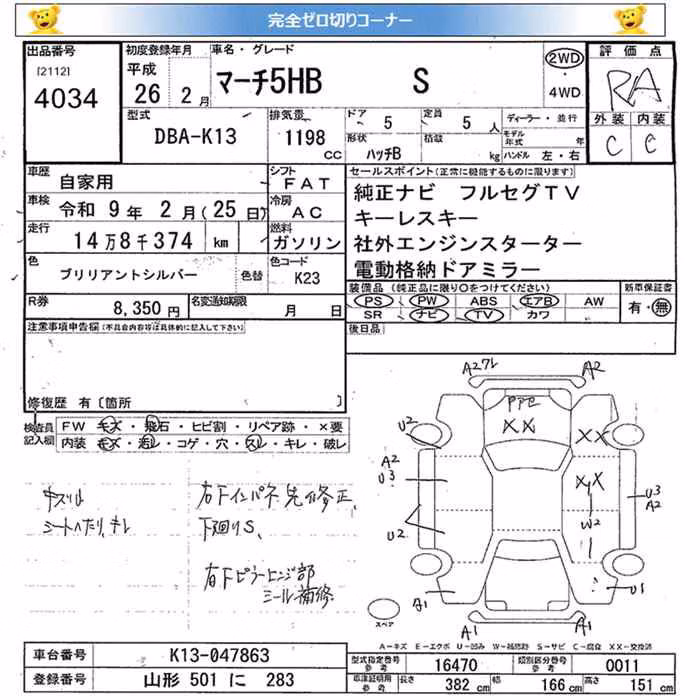 完全ゼロ切りコーナー
出品番号 初度登録年月 車名・グレード 評価点
[2112] 4034 平成 26 2月 マーチ5HB S 2WD・4WD RA
型式 排気量 ドア 定員 ディーラー・並行 外装 内装
DBA-K13 1198 CC 5 5人 モデル年式 年 C C
形状 ハッチB 積載 kg ハンドル 左・右
車歴 自家用 シフト FAT セールスポイント(正常に機能するものに限ります)
車検 令和 9年 2月(25日) 冷房 AC 純正ナビ フルセグTV
走行 14万8千374 km 燃料 ガソリン キーレスキー
社外エンジンスターター
色 ブリリアントシルバー 色替 色コード K23 電動格納ドアミラー
R券 8,350円 名変通知期限 月 日 装備品(純正品に限り○をつけてください) 新車保証書
PS PW ABS エアB AW 有・無
SR ナビ TV カワ
注意事項申告欄(不具合内容等は具体的に記入して下さい) 後日品
修復歴 有〔箇所 〕
検査員記入欄 FW キズ・飛石・ヒビ割・リペア跡・×要
内装 キズ・汚レ・コゲ・穴・スレ・キレ・破レ
A2ワレ A2
PPE
XX XX
U2
A2
U3 XX U3
A2
U2 W2
U1
A1 A1
キズリペ 右下インパネ先修正、
シートヘタリ、キレ 下廻りS、
右下ピラーヒンジ部
シール補修
スペア
A-キズ E-エクボ U-凹み W-補修跡 S-サビ C-腐食 XX-交換済
車台番号 K13-047863 型式指定番号 参考 16470 類別区分番号 参考 0011
登録番号 山形 501 に 283 車庫証明用 参考 長さ 382 cm 幅 166 cm 高さ 151 cm